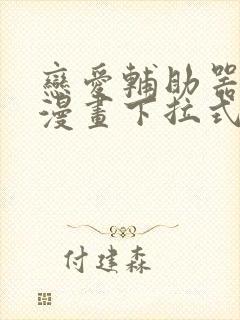 戀愛輔助器
漫畫下拉式
付建森